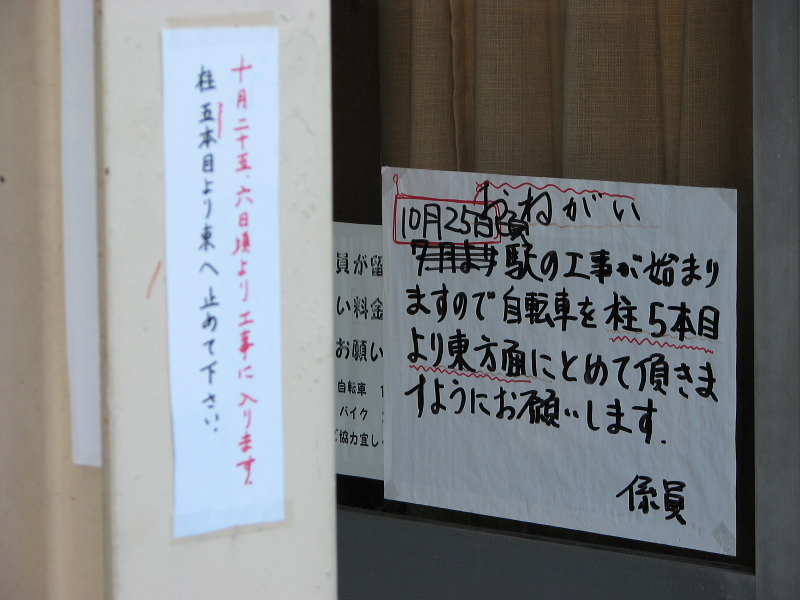 十月二十五、六日頃より工事に入ります。
柱五本目より東へ止めて下さい。
おねがい
10月25日頃
7月ます駅の工事が始まり
ますので自転車を柱5本目
より東方面にとめて頂きま
すようにお願いします.
係員
員が留
い料金
お願い
自転車
バイク
ご協力宜し